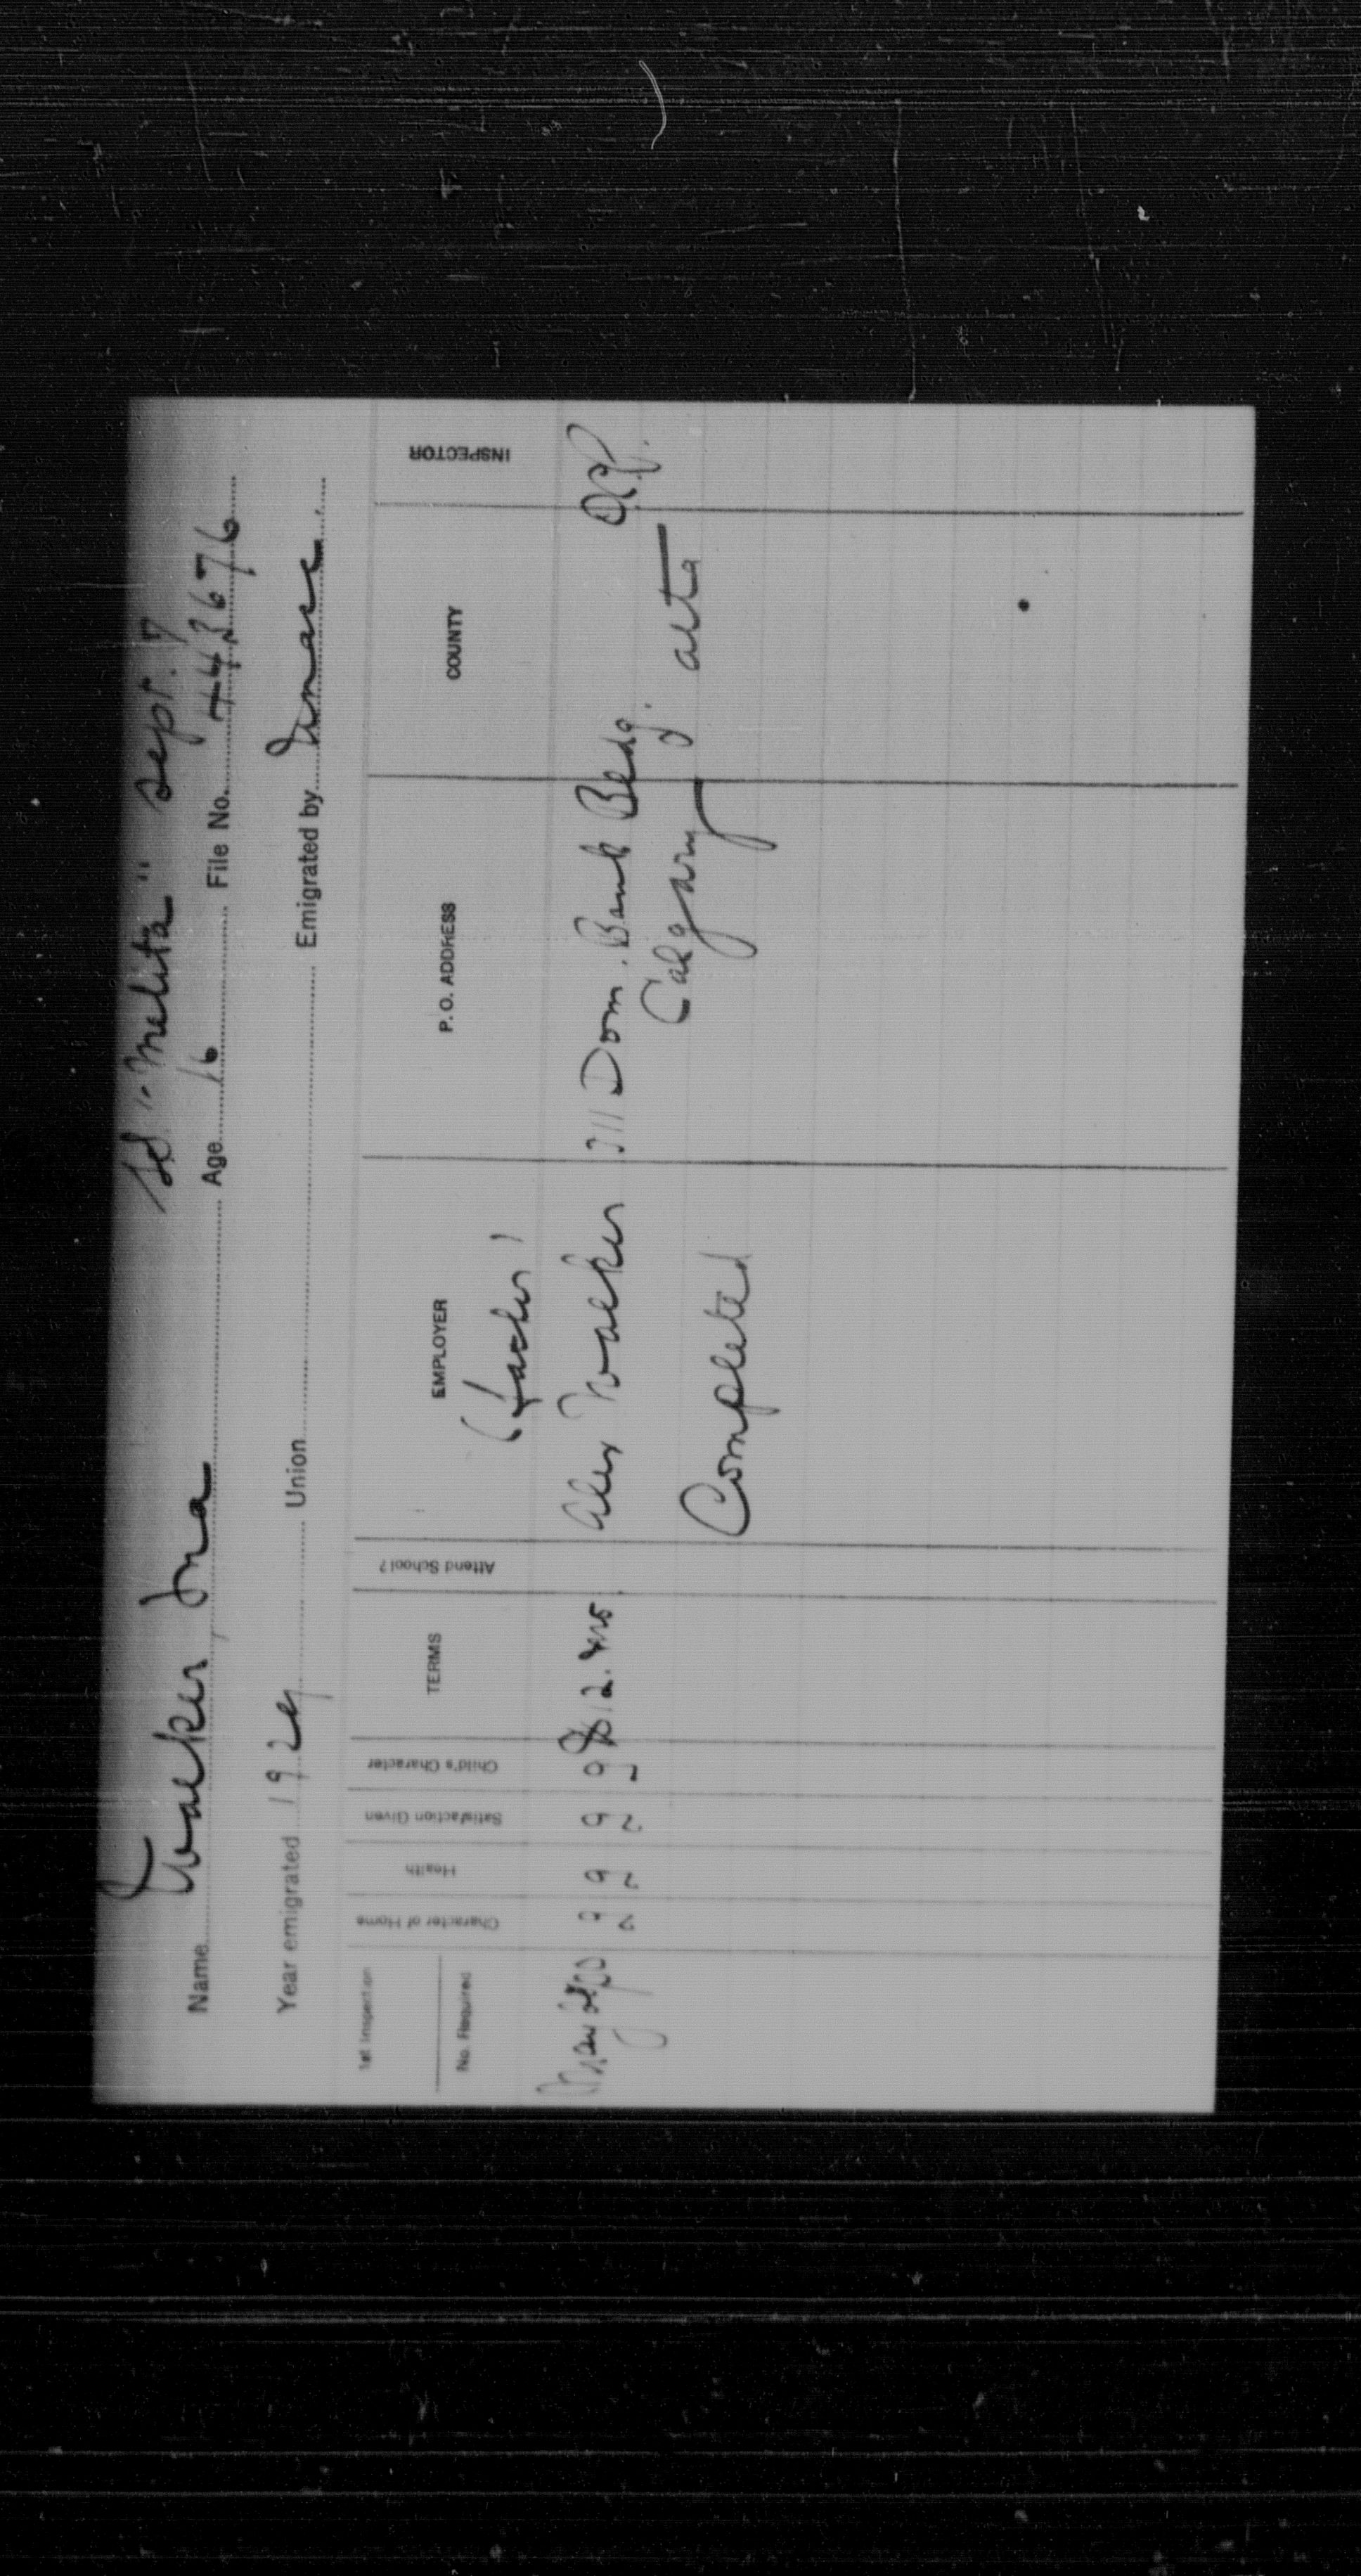 SS "Melita" Sept. 7
Name Walker Ina Age 16 File No. 443676
Year emigrated 1929 Union Emigrated by
1st Inspection
No. Required
Character of Home
Health
Satisfaction Given
Child's Character
TERMS
Attend School?
EMPLOYER
P. O. ADDRESS
COUNTY
INSPECTOR
(father)
May 9 9 9 9 12. mo. Alex Walker 211 Dom. Bank Bldg.
Completed Calgary alta